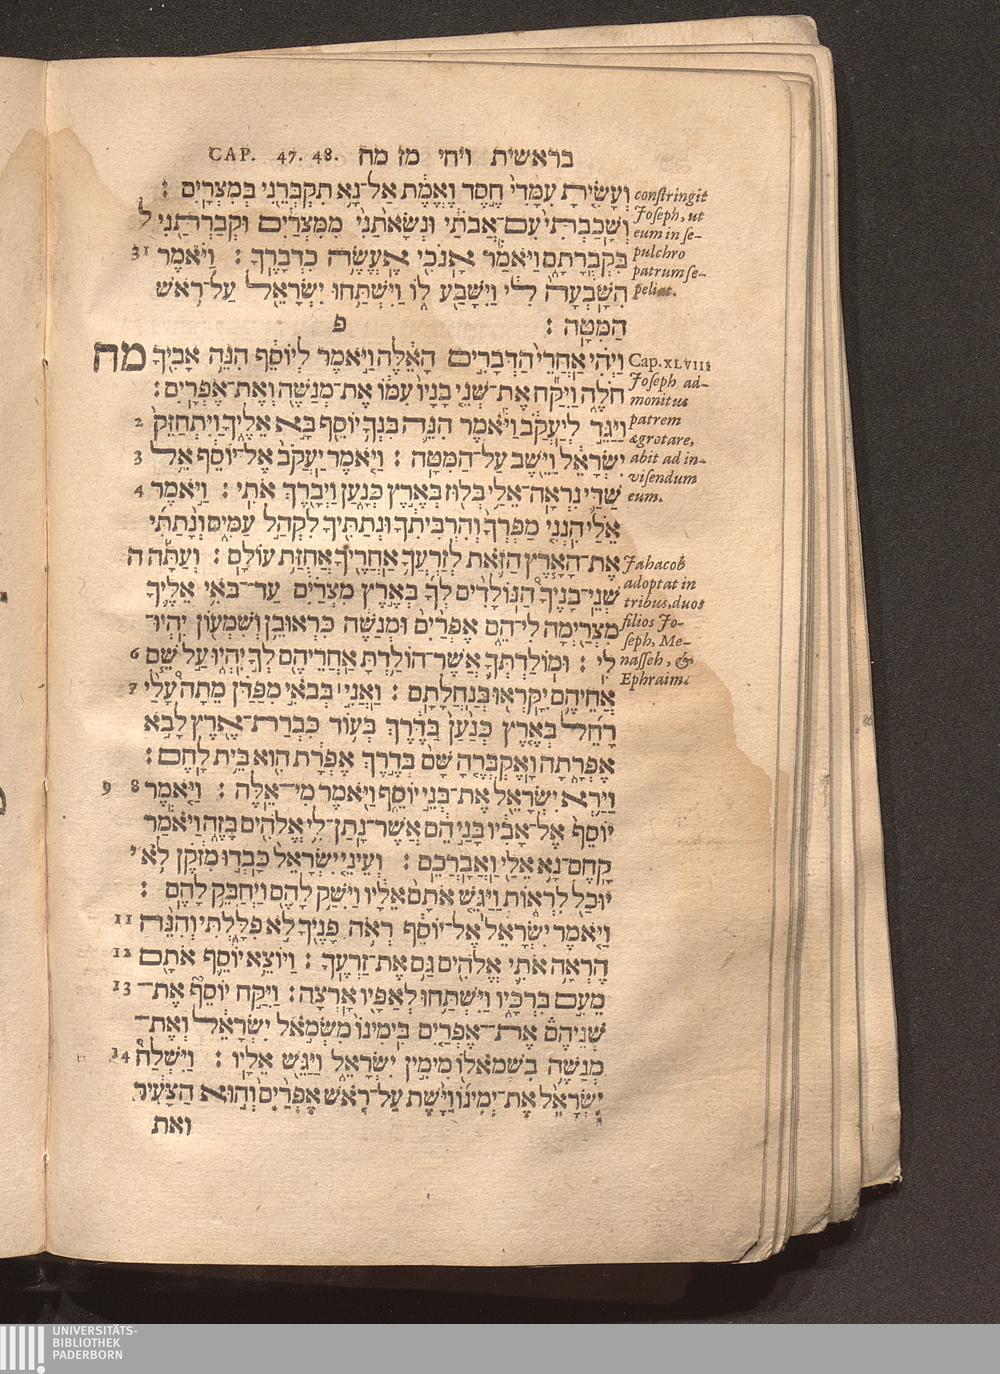 CAP. 47. 48. בראשית ויחי מז מח
וְעָשִׂיתָ עִמָּדִי חֶסֶד וֶאֱמֶת אַל־נָא תִקְבְּרֵנִי בְּמִצְרָיִם :
וְשָׁכַבְתִּי עִם־אֲבֹתַי וּנְשָׂאתַנִי מִמִּצְרַיִם וּקְבַרְתַּנִי ל
בִּקְבֻרָתָם וַיֹּאמַר אָנֹכִי אֶעֱשֶׂה כִדְבָרֶךָ : וַיֹּאמֶר 31
הִשָּׁבְעָה לִי וַיִּשָּׁבַע לוֹ וַיִּשְׁתַּחוּ יִשְׂרָאֵל עַל־רֹאשׁ
הַמִּטָּה : פ
וַיְהִי אַחֲרֵי הַדְּבָרִים הָאֵלֶּה וַיֹּאמֶר לְיוֹסֵף הִנֵּה אָבִיךָ מח
חֹלֶה וַיִּקַּח אֶת־שְׁנֵי בָנָיו עִמּוֹ אֶת־מְנַשֶּׁה וְאֶת־אֶפְרָיִם :
וַיַּגֵּד לְיַעֲקֹב וַיֹּאמֶר הִנֵּה בִּנְךָ יוֹסֵף בָּא אֵלֶיךָ וַיִּתְחַזֵּק 2
יִשְׂרָאֵל וַיֵּשֶׁב עַל־הַמִּטָּה : וַיֹּאמֶר יַעֲקֹב אֶל־יוֹסֵף אֵל 3
שַׁדַּי נִרְאָה־אֵלַי בְּלוּז בְּאֶרֶץ כְּנָעַן וַיְבָרֶךְ אֹתִי : וַיֹּאמֶר 4
אֵלַי הִנְנִי מַפְרְךָ וְהִרְבִּיתִךָ וּנְתַתִּיךָ לִקְהַל עַמִּים וְנָתַתִּי
אֶת־הָאָרֶץ הַזֹּאת לְזַרְעֲךָ אַחֲרֶיךָ אֲחֻזַּת עוֹלָם : וְעַתָּה ה
שְׁנֵי־בָנֶיךָ הַנּוֹלָדִים לְךָ בְּאֶרֶץ מִצְרַיִם עַד־בֹּאִי אֵלֶיךָ
מִצְרַיְמָה לִי־הֵם אֶפְרַיִם וּמְנַשֶּׁה כִּרְאוּבֵן וְשִׁמְעוֹן יִהְיוּ־
לִי : וּמוֹלַדְתְּךָ אֲשֶׁר־הוֹלַדְתָּ אַחֲרֵיהֶם לְךָ יִהְיוּ עַל שֵׁם 6
אֲחֵיהֶם יִקָּרְאוּ בְּנַחֲלָתָם : וַאֲנִי בְּבֹאִי מִפַּדָּן מֵתָה עָלַי 7
רָחֵל בְּאֶרֶץ כְּנַעַן בַּדֶּרֶךְ בְּעוֹד כִּבְרַת־אֶרֶץ לָבֹא
אֶפְרָתָה וָאֶקְבְּרֶהָ שָּׁם בְּדֶרֶךְ אֶפְרָת הִוא בֵּית לָחֶם :
וַיַּרְא יִשְׂרָאֵל אֶת־בְּנֵי יוֹסֵף וַיֹּאמֶר מִי־אֵלֶּה : וַיֹּאמֶר 8 9
יוֹסֵף אֶל־אָבִיו בָּנַי הֵם אֲשֶׁר־נָתַן־לִי אֱלֹהִים בָּזֶה וַיֹּאמַר
קָחֶם־נָא אֵלַי וַאֲבָרֲכֵם : וְעֵינֵי יִשְׂרָאֵל כָּבְדוּ מִזֹּקֶן לֹא י
יוּכַל לִרְאוֹת וַיַּגֵּשׁ אֹתָם אֵלָיו וַיִּשַּׁק לָהֶם וַיְחַבֵּק לָהֶם :
וַיֹּאמֶר יִשְׂרָאֵל אֶל־יוֹסֵף רְאֹה פָנֶיךָ לֹא פִלָּלְתִּי וְהִנֵּה 11
הֶרְאָה אֹתִי אֱלֹהִים גַּם אֶת־זַרְעֶךָ : וַיּוֹצֵא יוֹסֵף אֹתָם 12
מֵעִם בִּרְכָּיו וַיִּשְׁתַּחוּ לְאַפָּיו אָרְצָה : וַיִּקַּח יוֹסֵף אֶת־ 13
שְׁנֵיהֶם אֶת־אֶפְרַיִם בִּימִינוֹ מִשְּׂמֹאל יִשְׂרָאֵל וְאֶת־
מְנַשֶּׁה בִשְׂמֹאלוֹ מִימִין יִשְׂרָאֵל וַיַּגֵּשׁ אֵלָיו : וַיִּשְׁלַח 14
יִשְׂרָאֵל אֶת־יְמִינוֹ וַיָּשֶׁת עַל־רֹאשׁ אֶפְרַיִם וְהוּא הַצָּעִיר
ואת
constringit
Joseph, ut
eum in se-
pulchro
patrum se-
peliat.
Cap. XLVIII
Joseph ad-
monitus
patrem
ægrotare,
abit ad in-
visendum
eum.
Jahacob
adoptat in
tribus, duos
filios Jo-
seph, Me-
nasseh, &
Ephraim.
UNIVERSITÄTS-
BIBLIOTHEK
PADERBORN